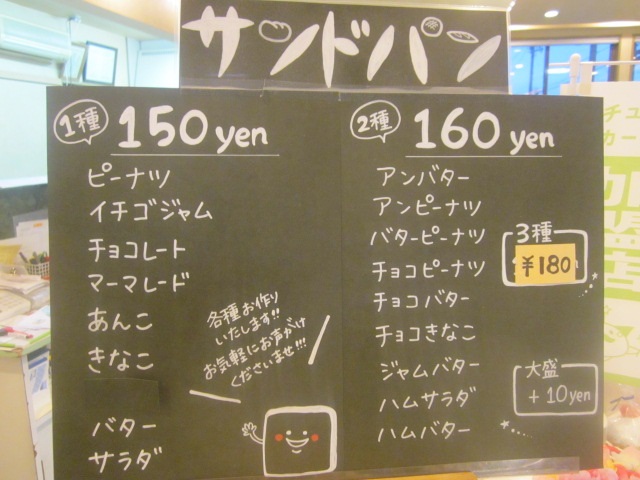 サンドパン
1種 150yen
ピーナツ
イチゴジャム
チョコレート
マーマレード
あんこ
きなこ
バター
サラダ
各種お作り
いたします!!
お気軽にお声がけ
くださいませ!!!
2種 160yen
アンバター
アンピーナツ
バターピーナツ
チョコピーナツ
チョコバター
チョコきなこ
ジャムバター
ハムサラダ
ハムバター
3種
¥180
大盛
+10yen
チュ
カー